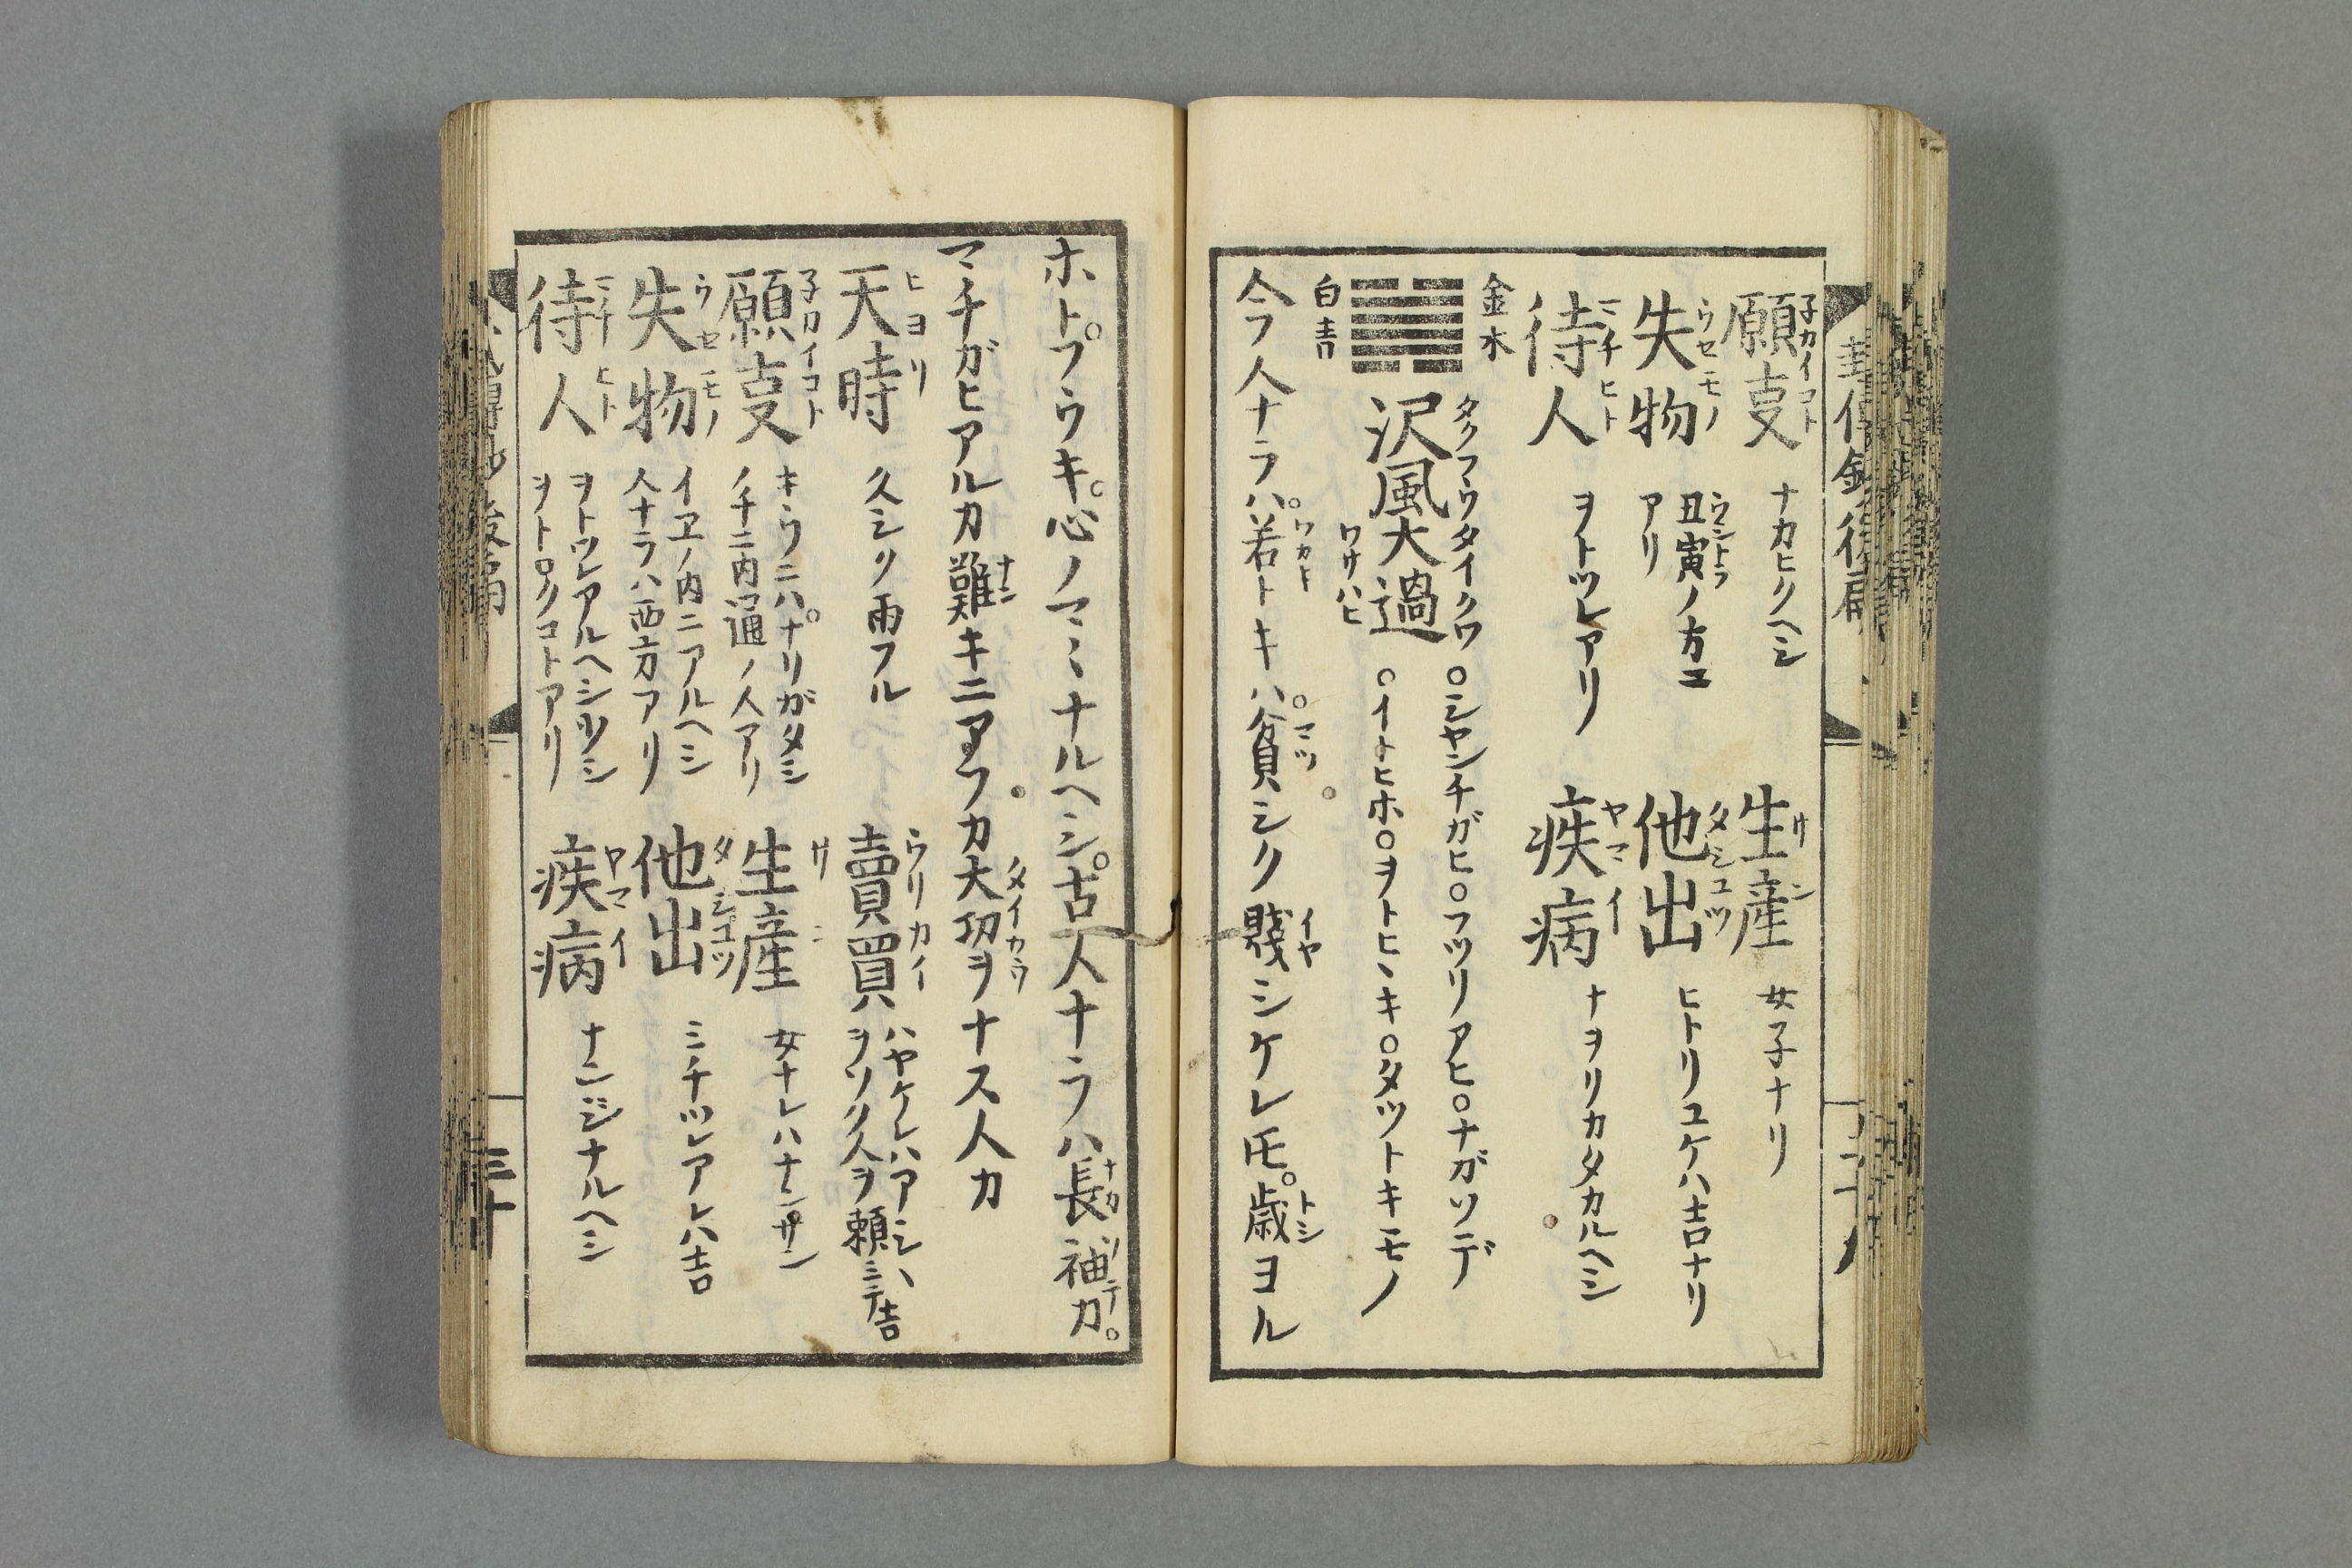 願叓 ナカヒクヘシ
生産 女子ナリ
失物 丑寅ノ方エアリ
他出 ヒトリユケハ吉ナリ
待人 ヲトツレアリ
疾病 ナヲリカタカルヘシ
金木
沢風大過
タクフウタイクワ
ワサハヒ
白吉
○シヤンチガヒ○フツリアヒ○ナガソデ
○イトヒホ○ヲトヒヽキ○タツトキモノ
今フ人ナラハ。若トキハ。貧シク賤シケレ𪜈。歳ヨル
ホト。フウキ。心ノマヽナルヘシ。古人ナラハ長袖カ。
マチガヒアルカ難キニアフカ大切ヲナス人カ
天時 久シク雨フル
賣買 ハヤケレハアシシハ
ヲソク人ヲ頼ミテ吉
願叓 キウニハ。ナリガタシ
ノチニ内通ノ人アリ
生産 女ナレハナンサン
失物 イヱノ内ニアルヘシ
人ナラハ西方アリ
他出 ミチツレアレハ吉
待人 ヲトツレアルヘシ
ヲトロクコトアリ
疾病 ナンジナルヘシ
三十